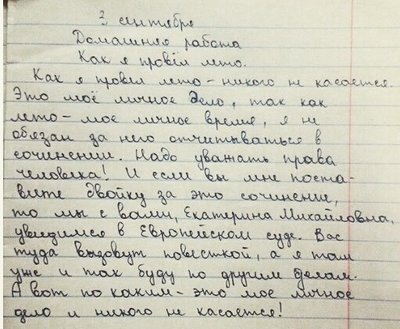 3 сентября
Домашняя работа
Как я провёл лето.
Как я провёл лето - никого не касается.
Это моё личное дело, так как
лето - мое личное время, я не
обязан за него отчитываться в
сочинении. Надо уважать права
человека! И если вы мне поста-
вите двойку за это сочинение,
то мы с вами, Екатерина Михайловна,
увидимся в Европейском суде. Вас
туда вызовут повесткой, а я там
уже и так буду по другим делам.
А вот по каким - это мое личное
дело и никого не касается!